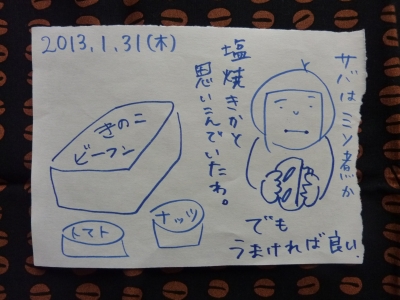 2013.1.31(木)
サバはミソ煮か
塩焼きかと
思いこんでいたわ。
でも
うまければ良い
きのこ
ビーフン
トマト
ナッツ